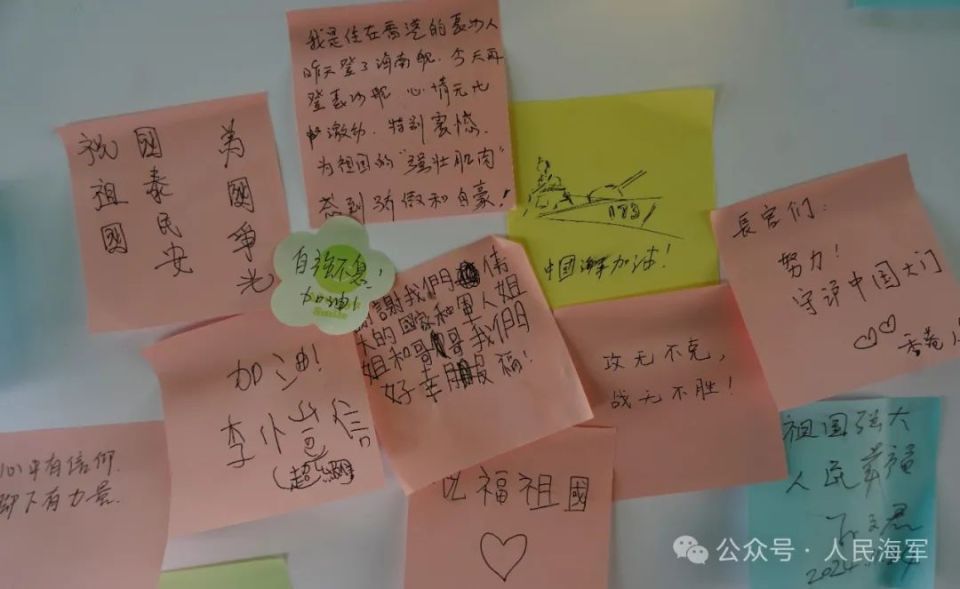 我是住在香港的長沙人
昨天登了海南舰，今天再
登長沙舰 心情无比
激动，特别震撼，
为祖国的“强壮肌肉”
感到骄傲和自豪！
祝祖國
國泰民安
為國爭光
自强不息，
加油！
183
中國海軍加油！
長官们：
努力！
守护中国大门
香港
謝我們偉
大的國家和軍人姐
姐和哥哥我們
好幸福！
加油！
攻无不克，
战无不胜！
心中有信仰
脚下有力量
祝福祖國
祖国强大
人民幸福
公众号·人民海军